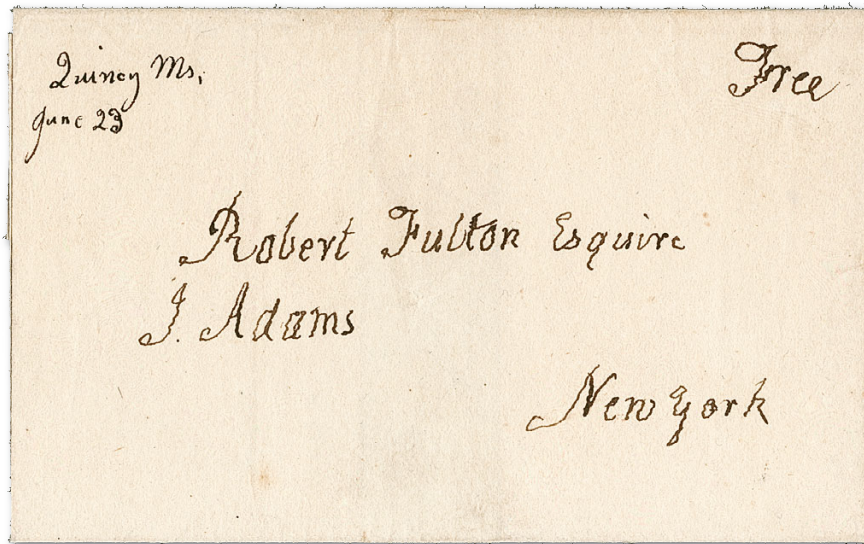 Quincy Ms,
June 23
Free
Robert Fulton Esquire
J. Adams
New York